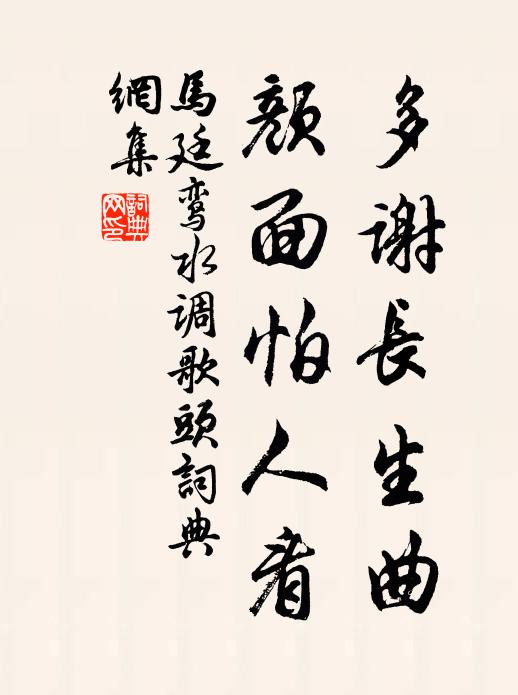 多謝長生曲
顏面怕人看
馬廷鸾水调歌頭詞典
網集
詞典
网印